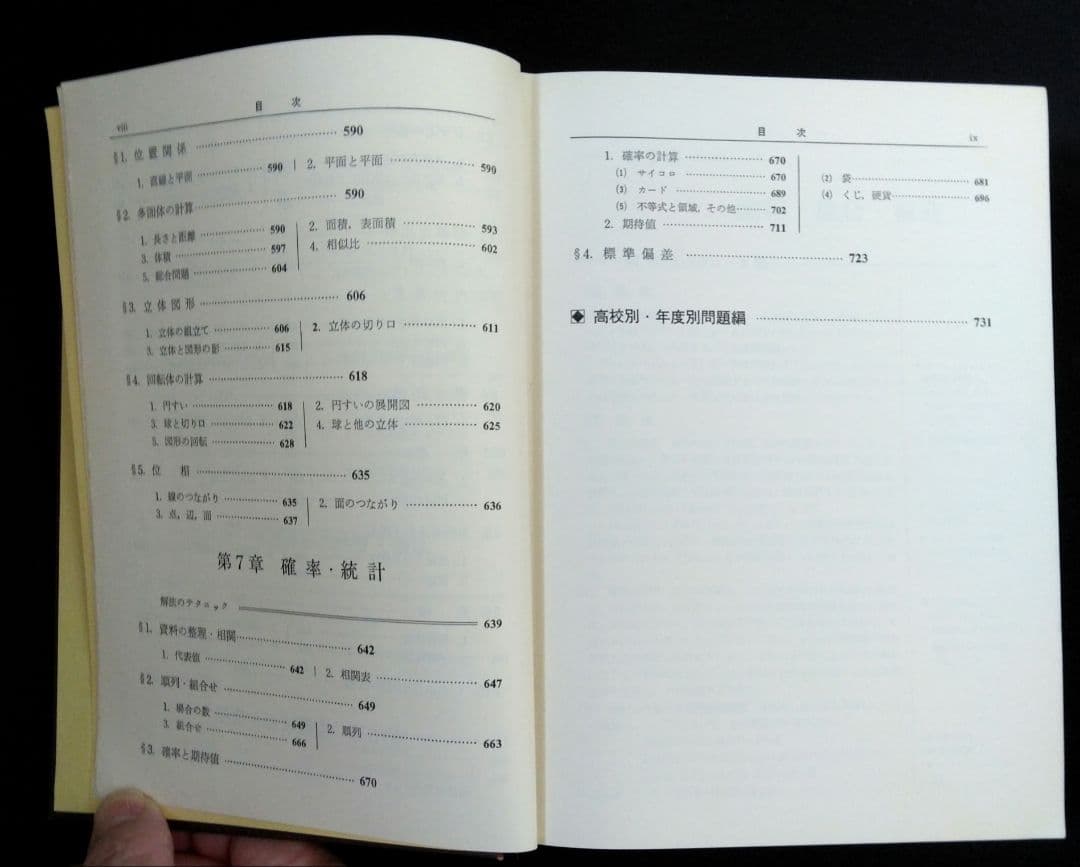 目 次
viii
§1. 位置関係 590
1. 直線と平面 590 2. 平面と平面 590
§2. 多面体の計算 590
1. 長さと距離 590 2. 面積，表面積 593
3. 体積 597 4. 相似比 602
5. 総合問題 604
§3. 立体図形 606
1. 立体の組立て 606 2. 立体の切り口 611
3. 立体と図形の影 615
§4. 回転体の計算 618
1. 円すい 618 2. 円すいの展開図 620
3. 球と切り口 622 4. 球と他の立体 625
5. 図形の回転 628
§5. 位 相 635
1. 線のつながり 635 2. 面のつながり 636
3. 点，辺，面 637
第7章 確率・統計
解法のテクニック 639
§1. 資料の整理・相関 642
1. 代表値 642 2. 相関表 647
§2. 順列・組合せ 649
1. 場合の数 649 2. 順列 663
3. 組合せ 666
§3. 確率と期待値 670
目 次 ix
1. 確率の計算 670
(1) サイコロ 670 (2) 袋 681
(3) カード 689 (4) くじ，硬貨 696
(5) 不等式と領域，その他 702
2. 期待値 711
§4. 標準偏差 723
◆ 高校別・年度別問題編 731